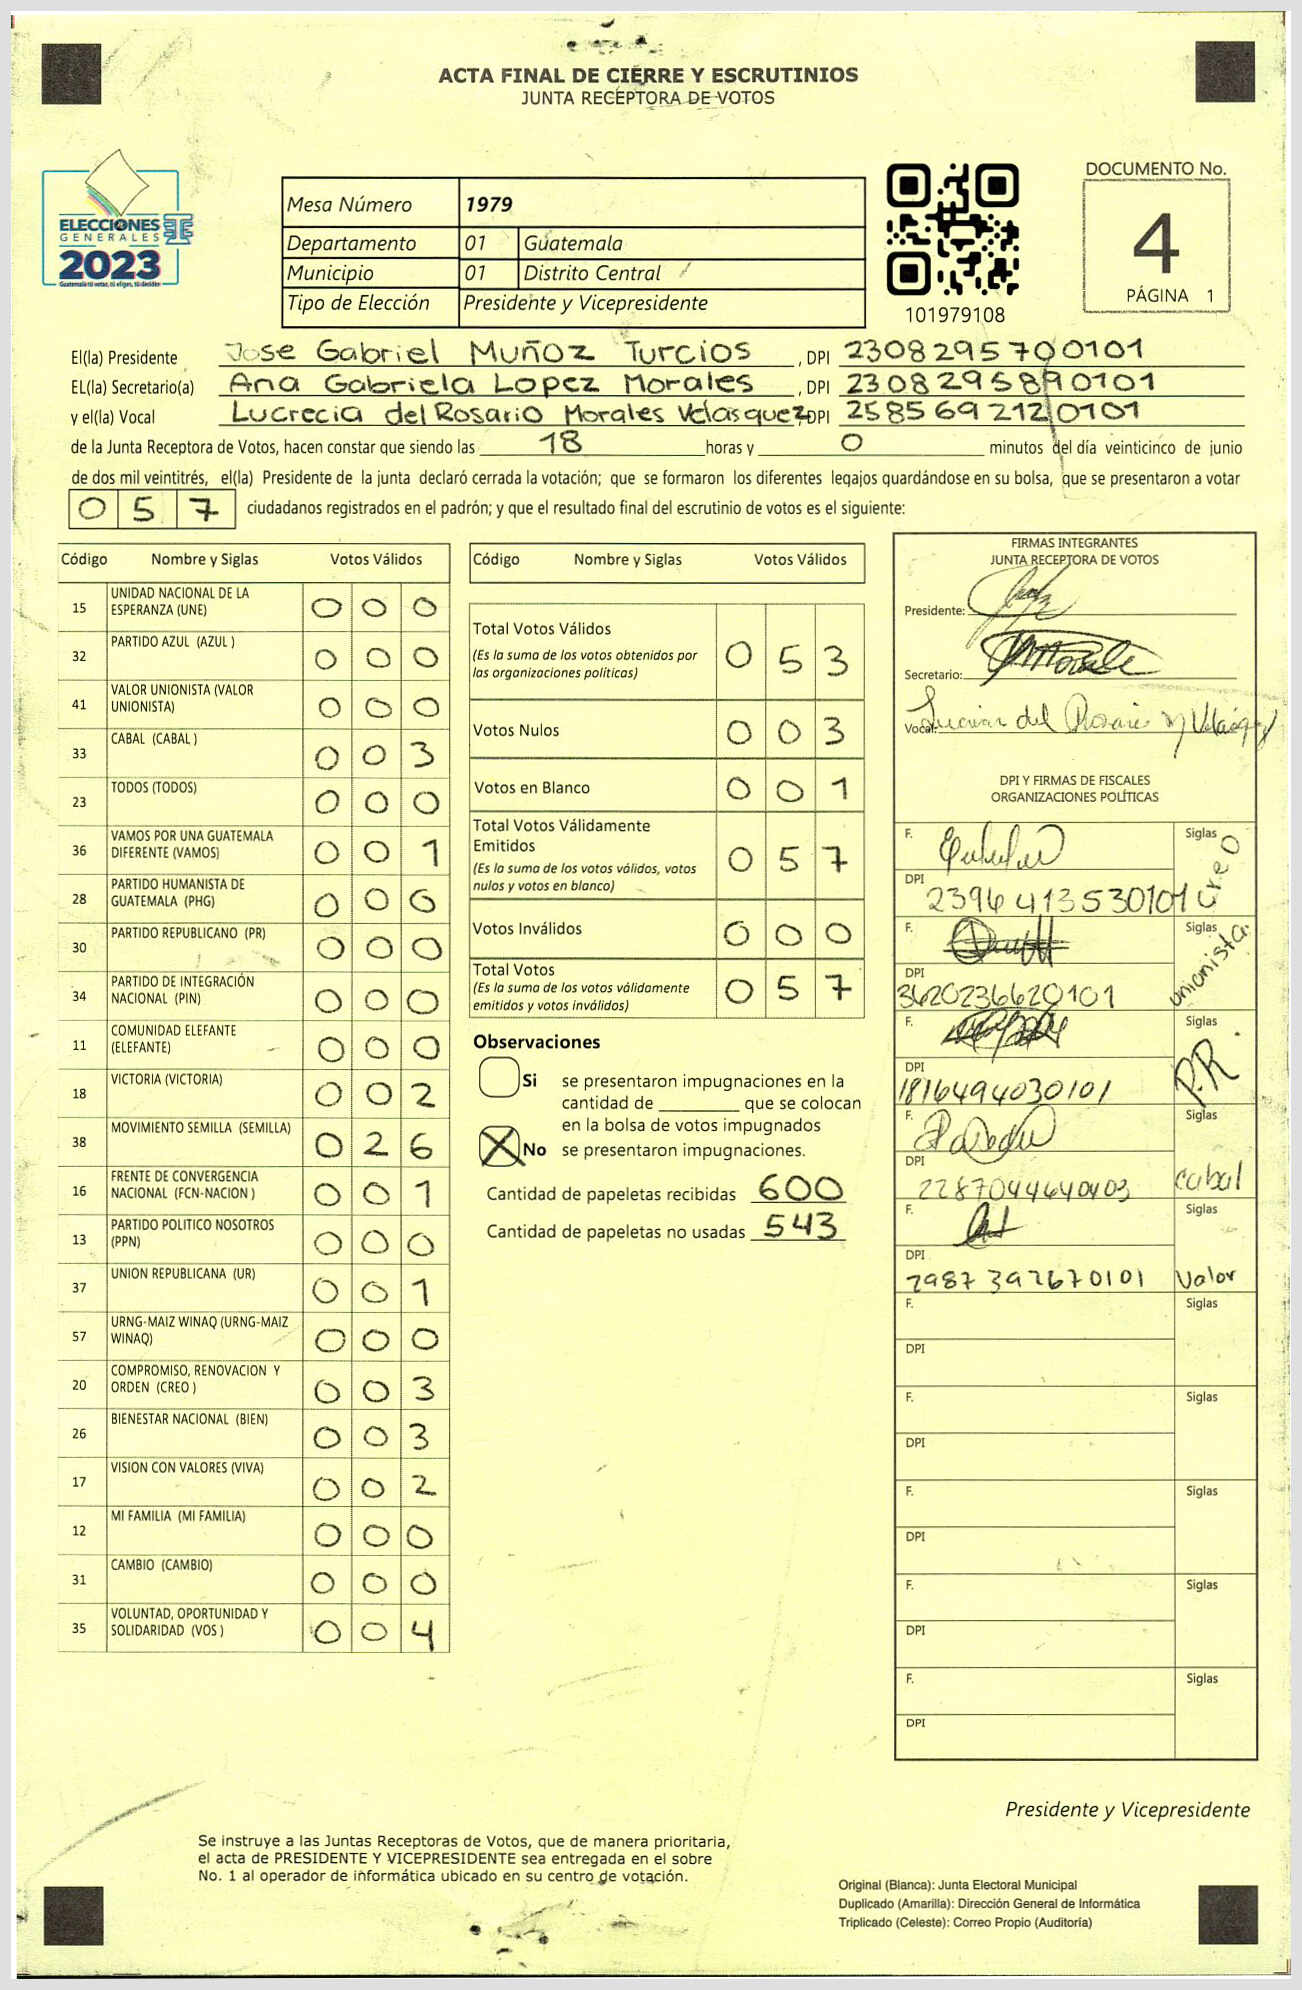 ACTA FINAL DE CIERRE Y ESCRUTINIOS
JUNTA RECEPTORA DE VOTOS
ELECCIONES
GENERALES
2023
Guatemala tú votas, tú eliges, tú decides
Mesa Número 1979
Departamento 01 Guatemala
Municipio 01 Distrito Central
Tipo de Elección Presidente y Vicepresidente
101979108
DOCUMENTO No.
4
PÁGINA 1
El(la) Presidente Jose Gabriel Muñoz Turcios, DPI 2308295700101
EL(la) Secretario(a) Ana Gabriela Lopez Morales, DPI 2308295890101
y el(la) Vocal Lucrecia del Rosario Morales Velasquez, DPI 2585692120101
de la Junta Receptora de Votos, hacen constar que siendo las 18 horas y 0 minutos del día veinticinco de junio
de dos mil veintitrés, el(la) Presidente de la junta declaró cerrada la votación; que se formaron los diferentes legajos guardándose en su bolsa, que se presentaron a votar
0 5 7 ciudadanos registrados en el padrón; y que el resultado final del escrutinio de votos es el siguiente:
Código Nombre y Siglas Votos Válidos
15 UNIDAD NACIONAL DE LA ESPERANZA (UNE) 0 0 0
32 PARTIDO AZUL (AZUL ) 0 0 0
41 VALOR UNIONISTA (VALOR UNIONISTA) 0 0 0
33 CABAL (CABAL ) 0 0 3
23 TODOS (TODOS) 0 0 0
36 VAMOS POR UNA GUATEMALA DIFERENTE (VAMOS) 0 0 1
28 PARTIDO HUMANISTA DE GUATEMALA (PHG) 0 0 6
30 PARTIDO REPUBLICANO (PR) 0 0 0
34 PARTIDO DE INTEGRACIÓN NACIONAL (PIN) 0 0 0
11 COMUNIDAD ELEFANTE (ELEFANTE) 0 0 0
18 VICTORIA (VICTORIA) 0 0 2
38 MOVIMIENTO SEMILLA (SEMILLA) 0 2 6
16 FRENTE DE CONVERGENCIA NACIONAL (FCN-NACION ) 0 0 1
13 PARTIDO POLITICO NOSOTROS (PPN) 0 0 0
37 UNION REPUBLICANA (UR) 0 0 1
57 URNG-MAIZ WINAQ (URNG-MAIZ WINAQ) 0 0 0
20 COMPROMISO, RENOVACION Y ORDEN (CREO ) 0 0 3
26 BIENESTAR NACIONAL (BIEN) 0 0 3
17 VISION CON VALORES (VIVA) 0 0 2
12 MI FAMILIA (MI FAMILIA) 0 0 0
31 CAMBIO (CAMBIO) 0 0 0
35 VOLUNTAD, OPORTUNIDAD Y SOLIDARIDAD (VOS ) 0 0 4
Código Nombre y Siglas Votos Válidos
Total Votos Válidos 0 5 3
(Es la suma de los votos obtenidos por
las organizaciones políticas)
Votos Nulos 0 0 3
Votos en Blanco 0 0 1
Total Votos Válidamente
Emitidos 0 5 7
(Es la suma de los votos válidos, votos
nulos y votos en blanco)
Votos Inválidos 0 0 0
Total Votos 0 5 7
(Es la suma de los votos válidamente
emitidos y votos inválidos)
Observaciones
Si se presentaron impugnaciones en la
cantidad de ________ que se colocan
en la bolsa de votos impugnados
X No se presentaron impugnaciones.
Cantidad de papeletas recibidas 600
Cantidad de papeletas no usadas 543
FIRMAS INTEGRANTES
JUNTA RECEPTORA DE VOTOS
Presidente:
Secretario:
Vocal: del Rosario M Velásquez
DPI Y FIRMAS DE FISCALES
ORGANIZACIONES POLÍTICAS
F. Siglas creo
DPI 2396413530101
F. Siglas unionista.
DPI 3620236620101
F. Siglas P.R.
DPI 1816494030101
F. Siglas cabal
DPI 2287044640403
F. Siglas Valor
DPI 2987392670101
F. Siglas
DPI
F. Siglas
DPI
F. Siglas
DPI
F. Siglas
DPI
F. Siglas
DPI
Presidente y Vicepresidente
Se instruye a las Juntas Receptoras de Votos, que de manera prioritaria,
el acta de PRESIDENTE Y VICEPRESIDENTE sea entregada en el sobre
No. 1 al operador de informática ubicado en su centro de votación.
Original (Blanca): Junta Electoral Municipal
Duplicado (Amarilla): Dirección General de Informática
Triplicado (Celeste): Correo Propio (Auditoría)